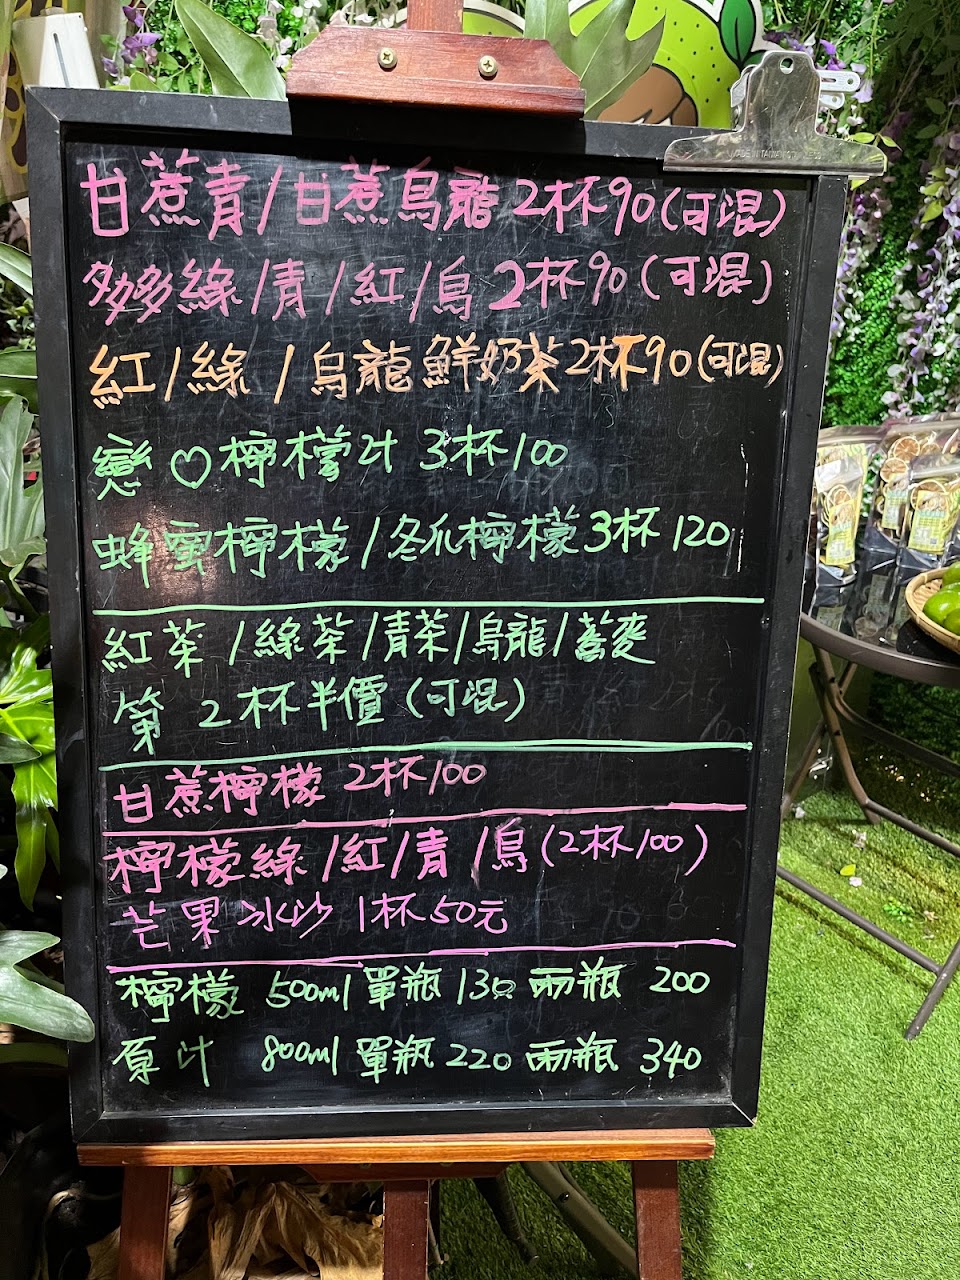 甘蔗青/甘蔗烏龍2杯90(可混)
多多綠/青/紅/烏2杯90(可混)
紅/綠/烏龍鮮奶茶2杯90(可混)
戀♡檸檬汁 3杯100
蜂蜜檸檬/冬瓜檸檬3杯120
紅茶/綠茶/青茶/烏龍/蕎麥
第2杯半價(可混)
甘蔗檸檬2杯100
檸檬綠/紅/青/烏(2杯100)
芒果冰沙 1杯50元
檸檬 500ml 單瓶130 兩瓶 200
原汁 800ml 單瓶220 兩瓶 340